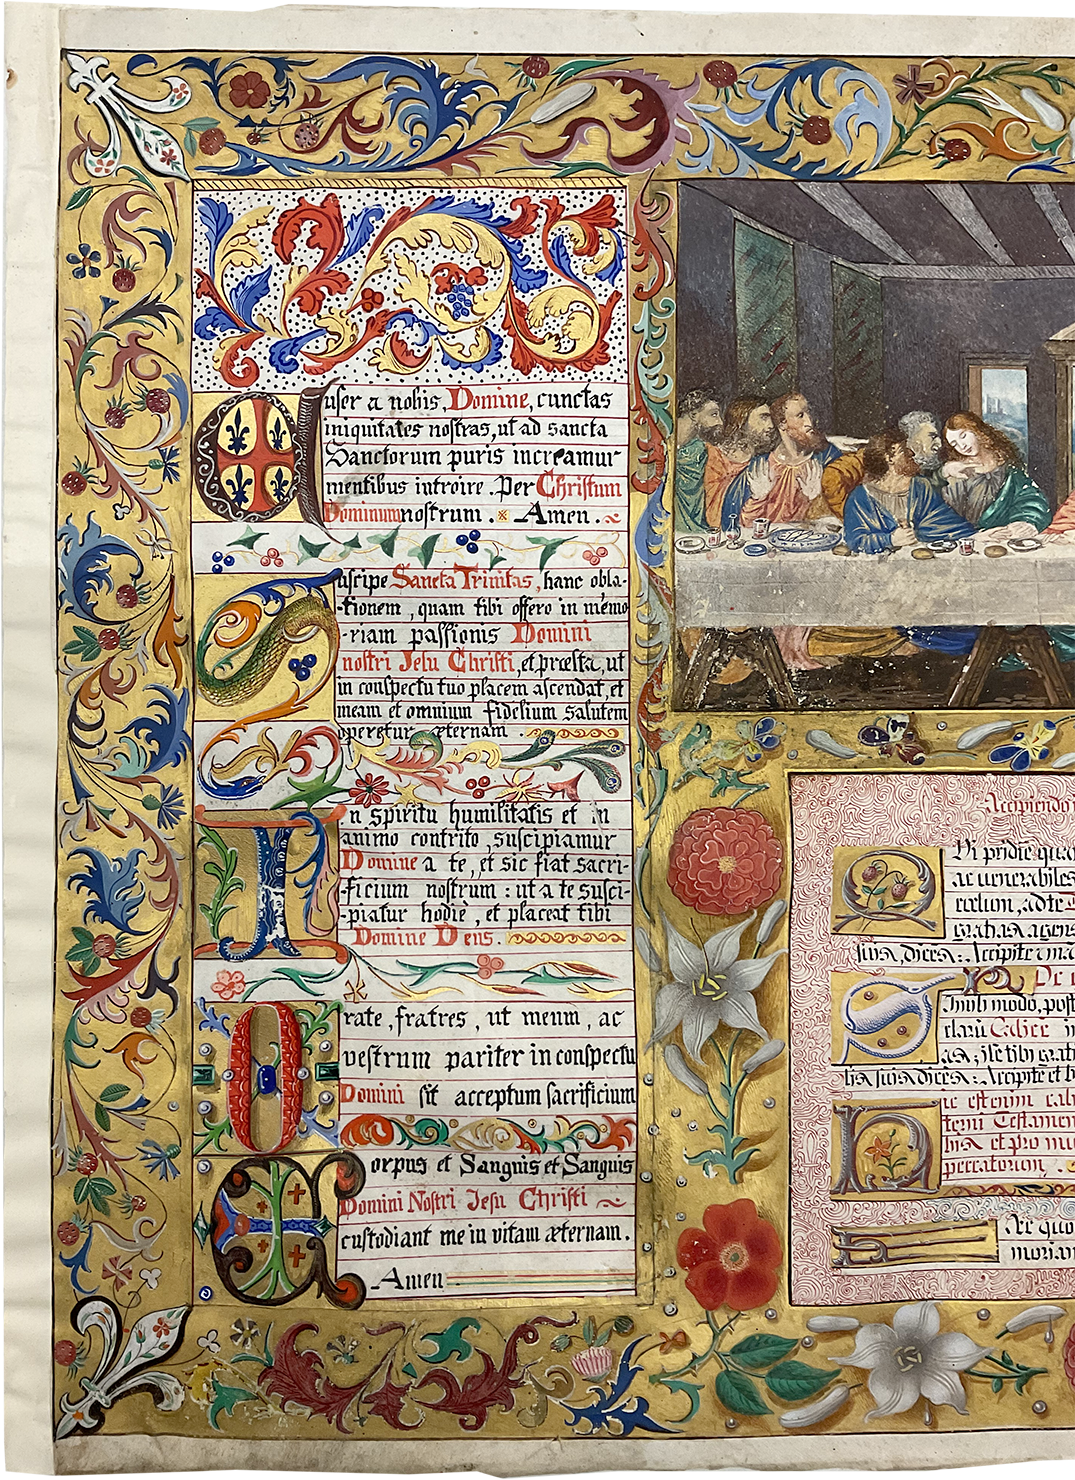 Aufer a nobis, Domine, cunctas
iniquitates nostras, ut ad sancta
Sanctorum puris increamur
mentibus introire. Per Christum
Dominum nostrum. Amen.
Suscipe Sancta Trinitas, hanc obla-
-tionem, quam tibi offero in memo
-riam passionis Domini
nostri Jesu Christi, et præsta, ut
in conspectu tuo placem ascendat, et
meam et omnium fidelium salutem
operetur æternam.
In spiritu humilitatis et in
animo contrito, suscipiamur
Domine a te, et sic fiat sacri-
-ficium nostrum: ut a te susci-
-piatur hodie, et placeat tibi
Domine Deus.
Orate, fratres, ut meum, ac
vestrum pariter in conspectu
Domini sit acceptum sacrificium
Corpus et Sanguis et Sanguis
Domini Nostri Jesu Christi
custodiant me in vitam æternam.
Amen
Accipiendo
Qui pridie qua
ac venerabiles
cœlum, ad te
gratias agens
suis, dicens: Accipite
Simili modo, post
clarum Calice
as; gratias
suis dicens: Accipite et
Testamen
et pro mu
peccatorum.
Hæc quo